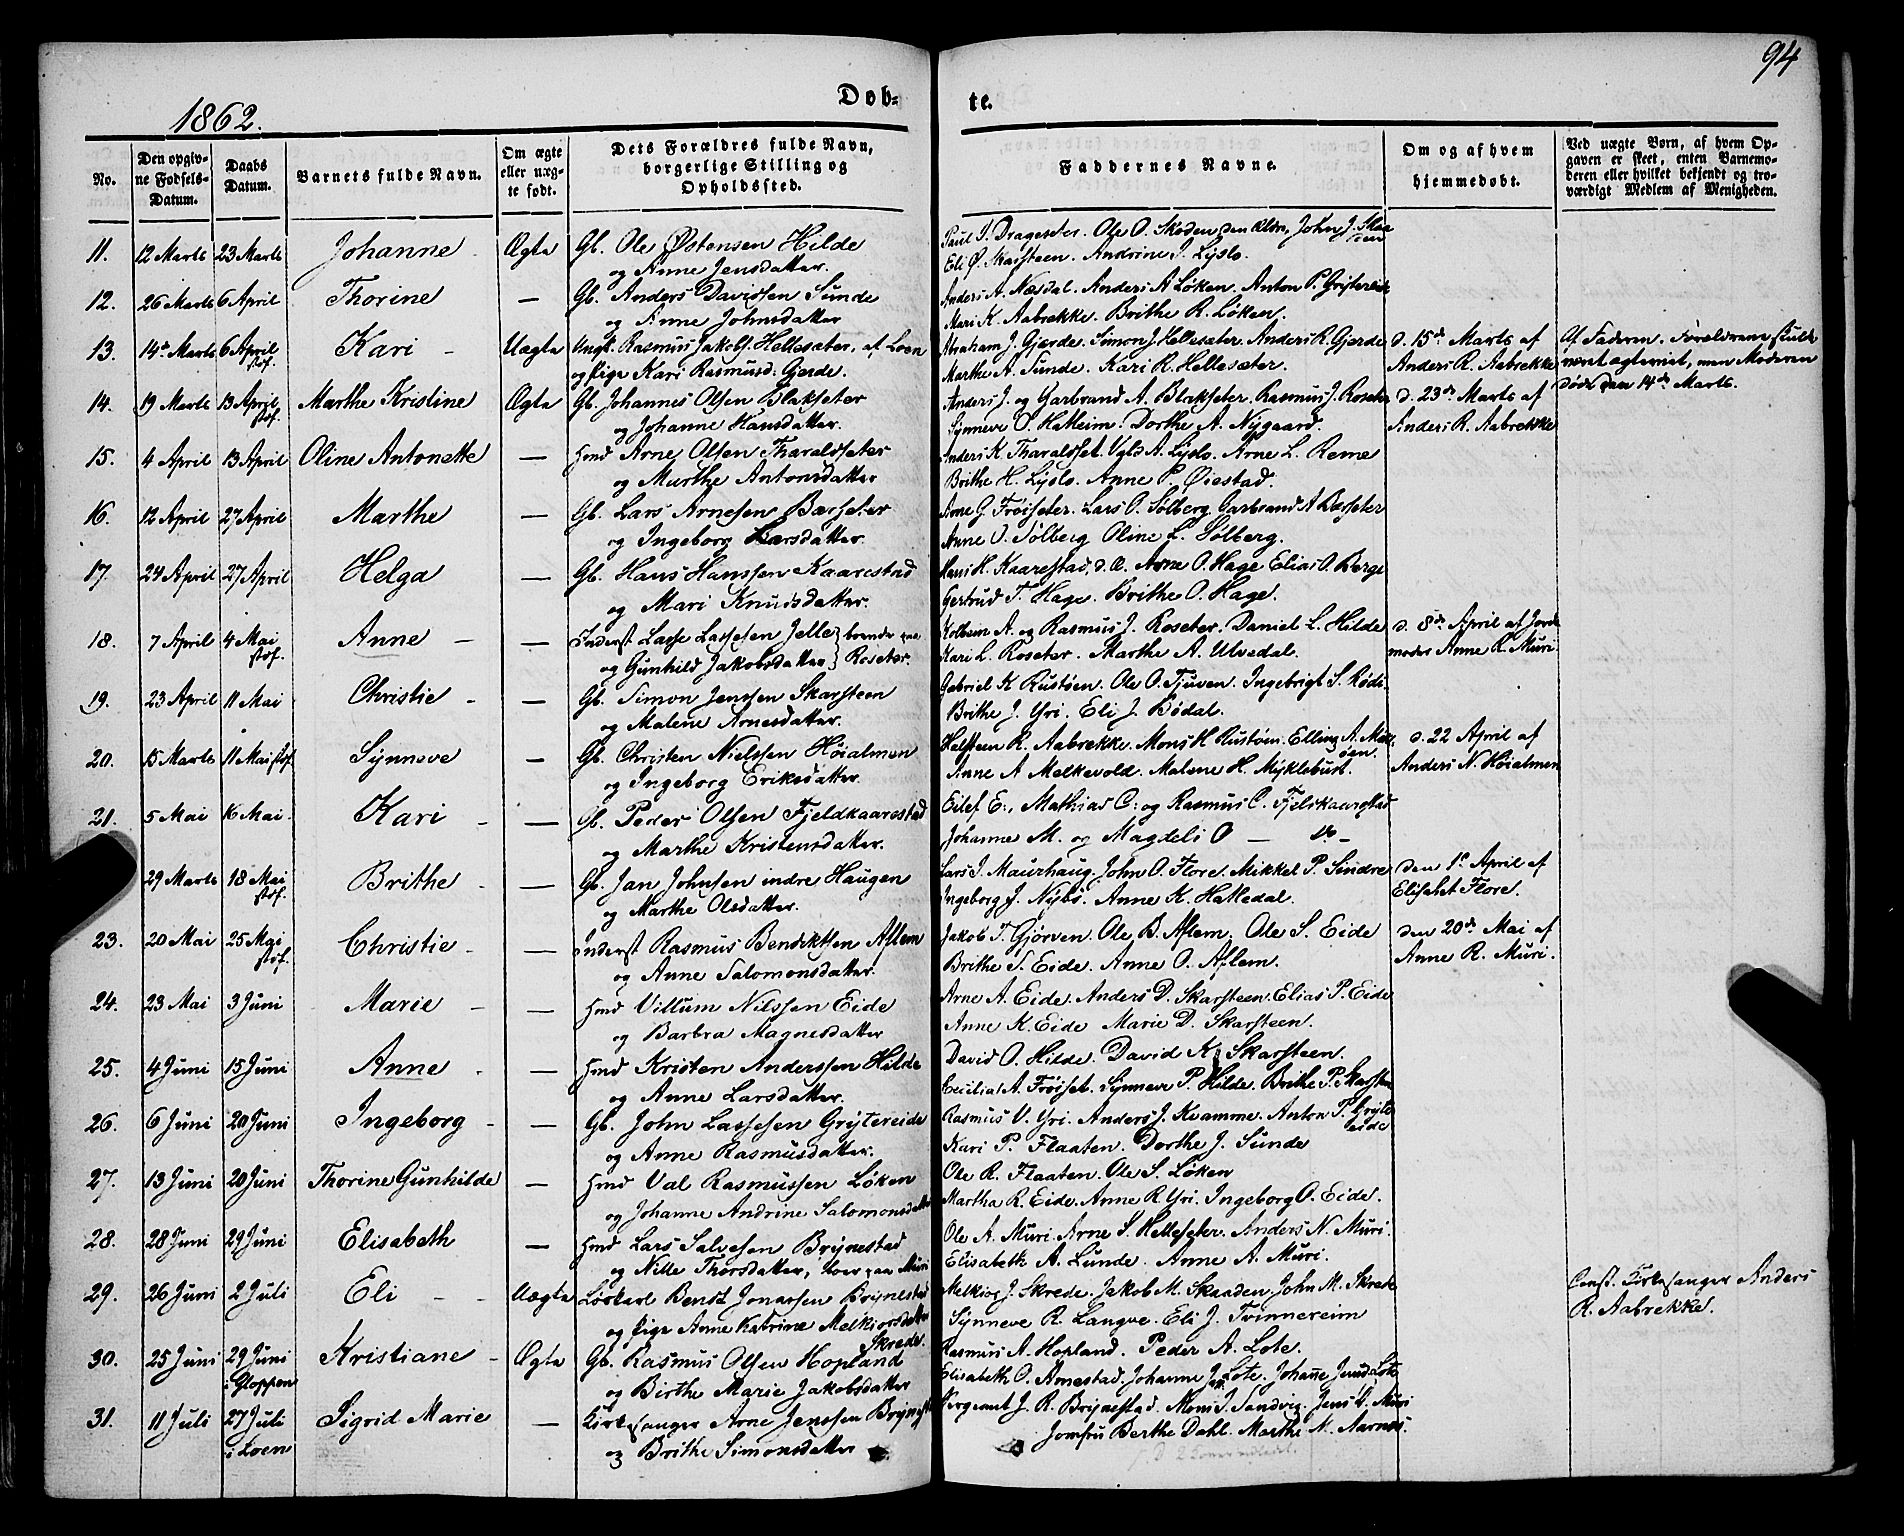 94
1862.
Døb-
te.
No.
Den opgiv-
ne Fødsels-
Datum.
Daabs
Datum.
Barnets fulde Navn.
Om ægte
eller uæg-
te født.
Dets Forældres fulde Navn,
borgerlige Stilling og
Opholdssted.
Faddernes Navne.
Om og af hvem
hjemmedøbt.
Ved uægte Børn, af hvem Op-
gaven er skeet, enten Barnemo-
deren eller hvilket bekjendt og tro-
værdigt Medlem af Menigheden.
11. 12 Marts 23 Marts Johanne Ægte Gb. Ole Østensen Hilde
og Anne Jensdatter.
Paul J. Dragesæter. Ole O. Skoden den Ældre, John J.
Eli Ø. Skarsteen. Andrine J. Lyslo.
12. 26 Marts 6 April Thorine — Gb. Anders Davidsen Sunde
og Anne Johnsdatter
Anders A. Næsdal. Anders A Løken. Anton P. Grytereide
Mari K. Aabrekke. Brithe R. Løken.
13. 14de Marts 6 April stof. Kari Uægte Ungk. Rasmus Jakobs. Hellesæter, af Loen
og Pige Kari Rasmusd. Gjerde.
Abraham J. Gjerde. Simon J. Hellesæter. Anders R. Gjerde
Marthe A. Sunde. Kari R. Hellesæter.
d. 15de Marts af
Anders R. Aabrekke
Af Faderen. Forældrene skulde
været ægteviet, men Moderen
døde den 14de Marts.
14. 19 Marts 13 April stof. Marthe Kristine Ægte Gb. Johannes Olsen Blakseter
og Johanne Hansdatter.
Anders J. og Garbrand A. Blakseter. Rasmus J. Roseter
Synneve O. Hatleim. Dorthe A. Nygaard.
d. 23de Marts af
Anders R. Aabrekke
15. 4 April 13 April Oline Antonette — Hmd Arne Olsen Tharaldseter
og Marthe Antonsdatter
Anders K. Tharaldset. Vgld A. Lyslo. Arne L. Reme
Brithe H. Lyslo. Anne P. Øiestad.
16. 12 April 27 April Marthe — Gb. Lars Arnesen Bærseter
og Ingeborg Larsdatter.
Arne G. Frøiseter. Lars O. Sølberg. Garbrand A Bærseter
Anne O. Sølberg Oline L. Sølberg.
17. 24 April 27 April Helga — Gb. Hans Hanssen Kaarestad
og Mari Knudsdatter.
Hans H. Kaarestad, d. Æ. Arne O. Hage Elias O. Berge
Gertrud T. Hage. Brithe O. Hage.
18. 7 April 4 Mai stof. Anne — Inderst Lasse Lassesen Jelle } boende paa
og Gunhild Jakobsdatter } Roseter.
Kolbein A. og Rasmus J. Roseter. Daniel L. Hilde
Kari L. Roseter. Marthe A. Ulvedal.
d. 8de April af Jord-
moder Anne R. Muri
19. 23 April 11 Mai Christie — Gb. Simon Jenssen Skarsteen
og Malene Arnesdatter.
Gabriel K Rustøen. Ole O. Tjuven. Ingebrigt S. Rødi.
Brithe J. Yri. Eli J. Bødal.
20. 15 Marts 11 Mai stof. Synneve — Gb. Christen Nielssen Høialmen
og Ingeborg Eriksdatter.
Halsteen R. Aabrekke. Mons H Rustøen. Elling A.
Anne A Melkevold. Malene H. Myklebust.
d. 22 April af
Anders N. Høialmen
21. 5 Mai 16 Mai. Kari — Gb. Peder Olsen Fjeldkaarestad
og Marthe Kristensdatter.
Eilef E:, Mathias C: og Rasmus C. Fjelskaarestad
Johanne M. og Magdeli O — do —
29 Marts 18 Mai stof. Brithe — Gb. Jan Johnsen indre Haugen
og Marthe Olsdatter.
Lars J. Maurhaug. John O. Flore. Mikkel P. Sindre
Ingeborg J. Nybø. Anne K. Hatledal.
den 1ste April af
Elisabet Flore.
23. 20 Mai 25 Mai stof. Christie — Inderst Rasmus Bendiktsen Aflem
og Anne Salomonsdatter.
Jakob T. Gjørven. Ole B. Aflem. Ole S. Eide
Brithe S. Eide. Anne O. Aflem.
den 20de Mai af
Anne R. Muri.
24. 23 Mai 3 Juni Marie — Hmd Villum Nilssen Eide
og Barbra Magnesdatter
Arne A. Eide. Anders D. Skarsteen. Elias P. Eide
Anne K. Eide Marie D. Skarsteen.
25. 4 Juni 15 Juni Anne — Hmd Kristen Anderssen Hilde
og Anne Larsdatter.
David O. Hilde. David K. Skarsteen.
Cecilia A. Frøiset. Synneve P. Hilde. Brithe P. Skarsten
26. 6 Juni 20 Juni Ingeborg — Gb. John Lassesen Grytereide
og Anne Rasmusdatter.
Rasmus V. Yri. Anders J. Kvamme. Anton P. Gryte
reide
Kari P. Flaaten. Dorthe J. Sunde
27. 13 Juni 20 Juni Thorine Gunhilde — Hmd Val Rasmussen Løken
og Johanne Andrine Salomonsdatter
Ole R. Flaaten. Ole S. Løken
Martha R. Eide. Anne R. Yri. Ingeborg O. Eide.
28. 28 Juni 29 Juni Elisabeth — Hmd Lars Salvesen Brynestad
og Nille Thorsdatter, boer paa Muri
Ole A. Muri. Arne S. Helleseter. Anders N. Muri.
Elisabeth A. Lunde. Anne A. Muri.
29. 26 Juni 2 Juli Eli Uægte Løskarl Bendt Jonassen Brynestad
og Pige Anne Katrine Melkiorsdatter
Skrede.
Melkior J. Skrede. Jakob M. Skaaden. John M. Skrede
Synneve R. Langve. Eli J. Tvinnereim
Const. Kirkesanger Anders
R. Aabrekke.
30. 25 Juni 29 Juni i Gloppen Kristiane Ægte Gb. Rasmus Olsen Hopland
og Birthe Marie Jakobsdatter
Rasmus A. Hopland. Peder A. Lote.
Elisabeth O. Arnestad. Johanne J. Lote. Johanne Lote
31. 11 Juli 27 Juli i Loen Sigrid Marie — Kirkesanger Arne Jenssen Brynestad
og Brithe Simonsdatter
Sergeant J. R. Brynestad. Mons S. Sandvig. Jens A. Muri
Jomfru Berthe Dahl. Marthe N. Aarnes.